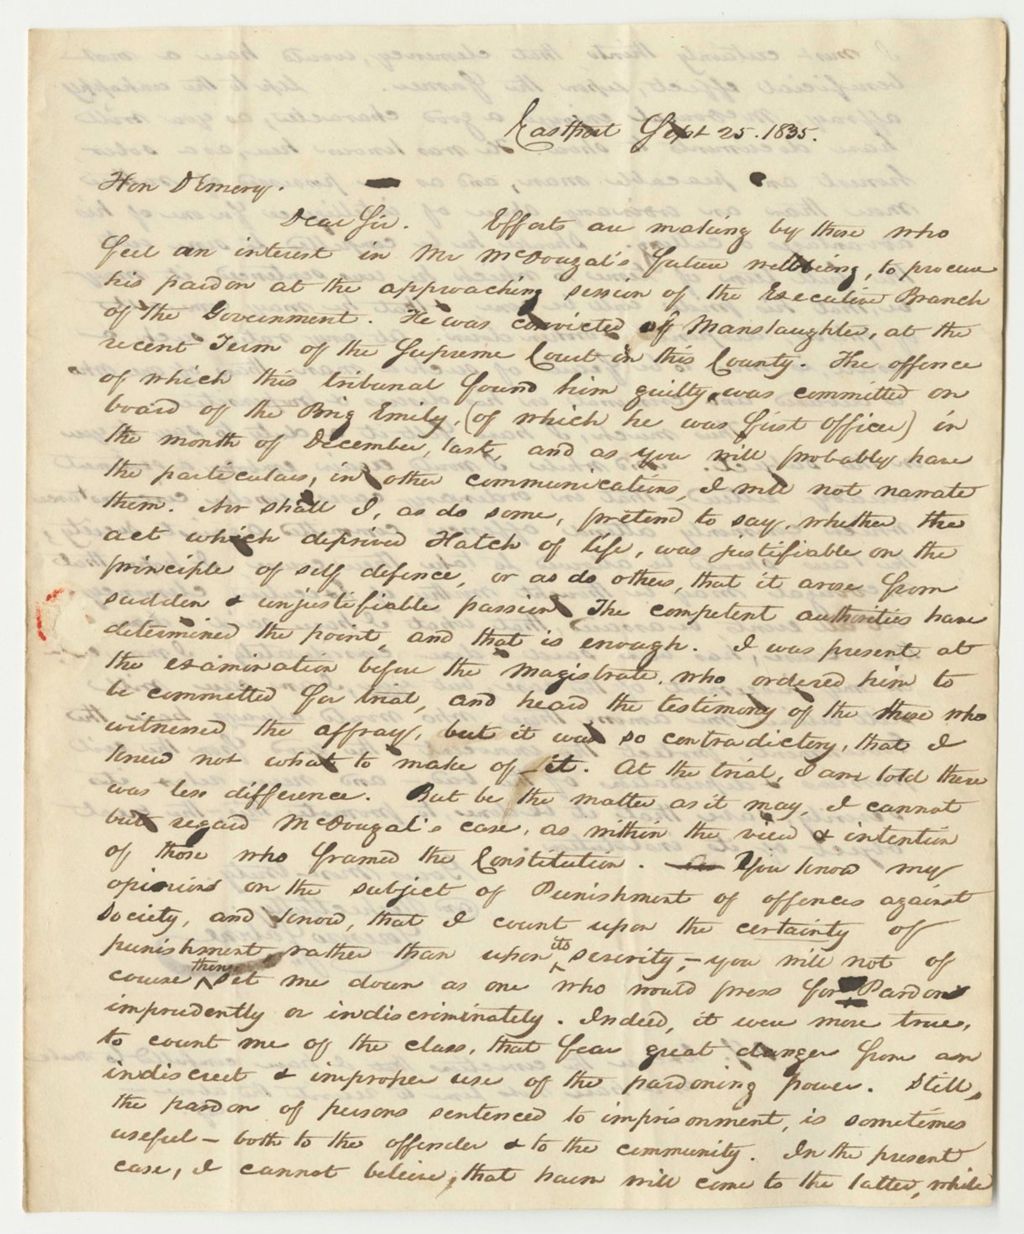 Eastport Sept 25. 1835.
Hon D Emery.
Dear Sir. Efforts are making by those who
feel an interest in Mr McDougal's future wellbeing, to procure
his pardon at the approaching session of the Executive Branch
of the Government. He was convicted of Manslaughter, at the
recent Term of the Supreme Court in this County. The offence
of which this tribunal found him guilty, was committed on
board of the Brig Emily, (of which he was first officer) in
the month of December, last, and as you will probably have
the particulars, in other communications, I will not narrate
them. Nor shall I, as do some, pretend to say, whether the
act which deprived Hatch of life, was justifiable on the
principle of self defence, or as do others, that it arose from
sudden & unjustifiable passion. The competent authorities have
determined the point, and that is enough. I was present at
the examination before the Magistrate, who ordered him to
be committed for trial, and heard the testimony of the those who
witnessed the affray, but it was so contradictory, that I
knew not what to make of it. At the trial, I am told there
was less difference. But be the matter as it may, I cannot
but regard McDougal's case, as within the view & intention
of those who framed the Constitution. You know my
opinions on the subject of Punishment of offences against
Society, and know, that I count upon the certainty of
punishment, rather than upon its severity,- you will not of
course then set me down as one who would press for Pardons
imprudently or indiscriminately. Indeed, it were more true,
to count me of the class, that fear great danger from an
indiscreet & improper use of the pardoning power. Still,
the pardon of persons sentenced to imprisonment, is sometimes
useful - both to the offender & to the community. In the present
case, I cannot beleive, that harm will come to the latter, while